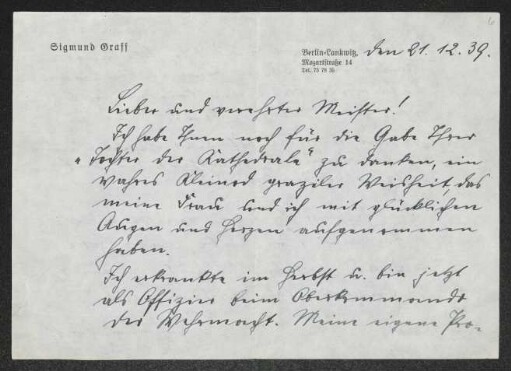 Sigmund Graff
Berlin-Lankwitz, den 21. 12. 39.
Mozartstraße 14
Tel. 73 78 35
Lieber und verehrter Meister!
Ich habe Ihnen noch für die Gabe Ihrer
"Tochter der Kathedrale" zu danken, ein
wahres Kleinod graziler Weisheit, das
meine Frau und ich mit glücklichen
Augen und Herzen aufgenommen
haben.
Ich erkrankte im Herbst u. bin jetzt
als Offizier beim Oberkommando
der Wehrmacht. Meine eigene Pro-